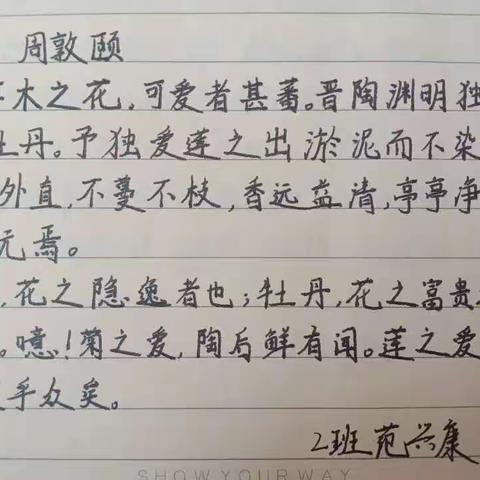 周敦颐
木之花，可爱者甚蕃。晋陶渊明独
丹。予独爱莲之出淤泥而不染
外直，不蔓不枝，香远益清，亭亭净
焉。
，花之隐逸者也；牡丹，花之富贵
。噫！菊之爱，陶后鲜有闻。莲之爱
乎众矣。
2班 范兴康
SHOW YOUR WAY